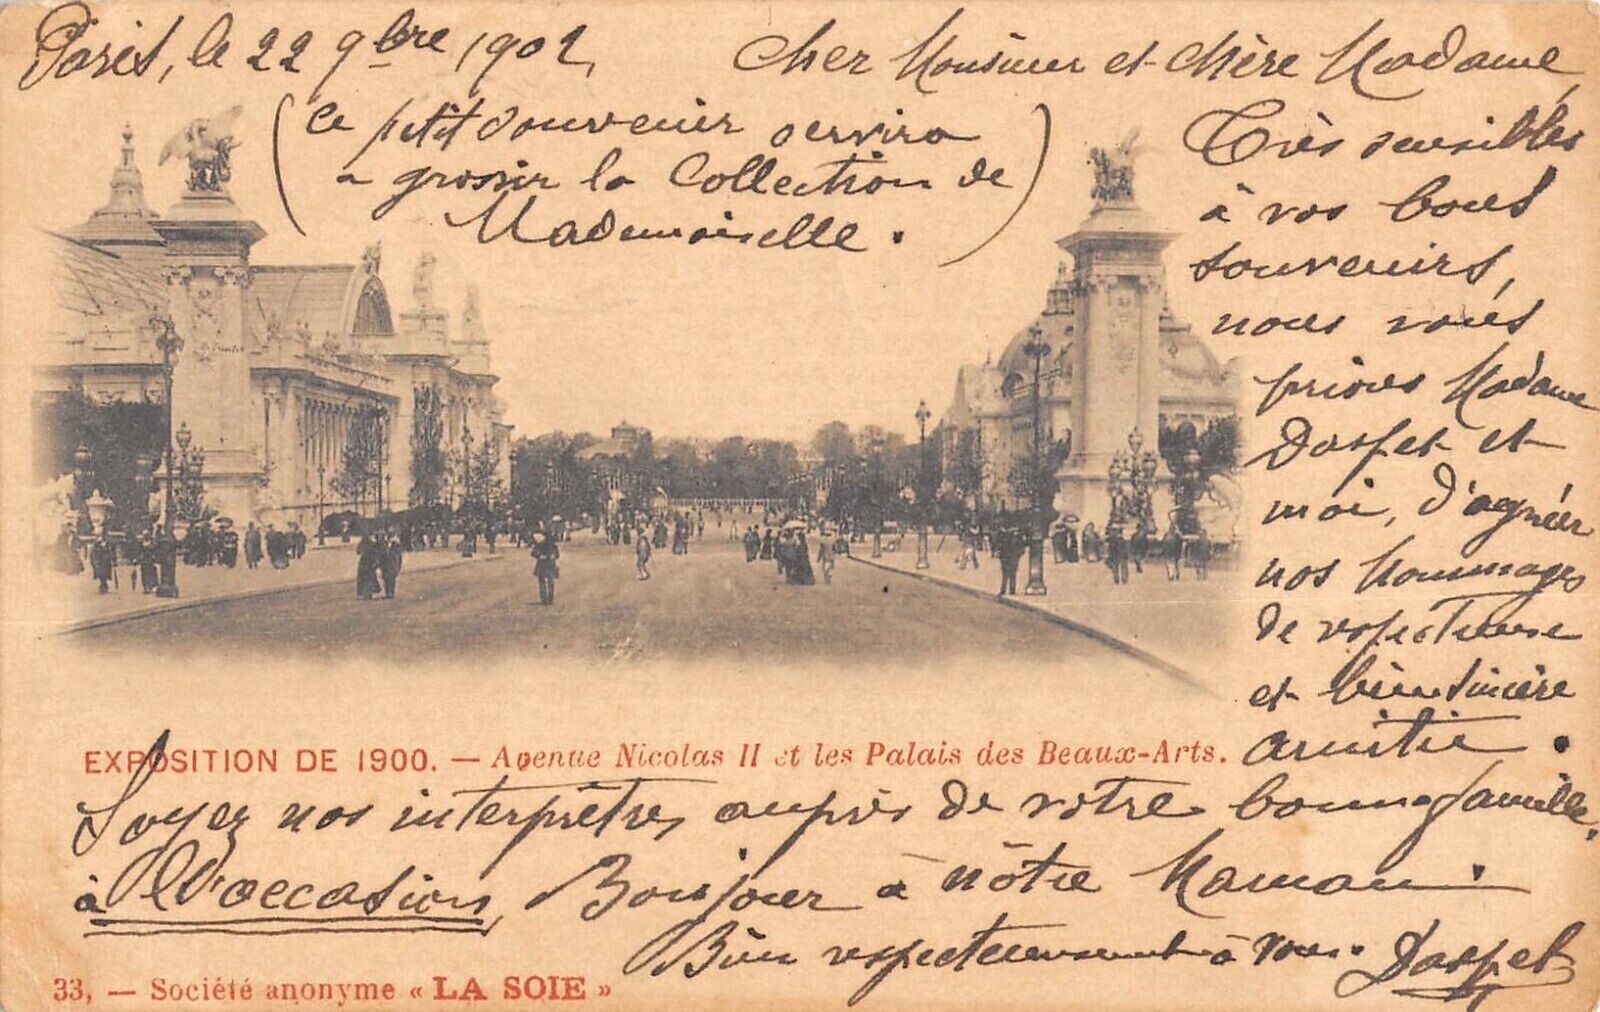 Paris, le 22 9bre 1902,
Cher Monsieur et chère Madame,
(Ce petit souvenir servira
a grossir la Collection de
Mademoiselle.)
Très sensibles
à vos bons
souvenirs,
nous vous
prions Madame
Daspet et
moi, d'agréer
nos hommages
de respectueuse
et bien sincère
amitié.
EXPOSITION DE 1900. — Avenue Nicolas II et les Palais des Beaux-Arts.
Soyez nos interprètres auprès de votre bonne famille,
à l'occasion, Bonjour à nôtre Maman.
Bien respectueusement à vous. Daspet
33, — Société anonyme « LA SOIE »